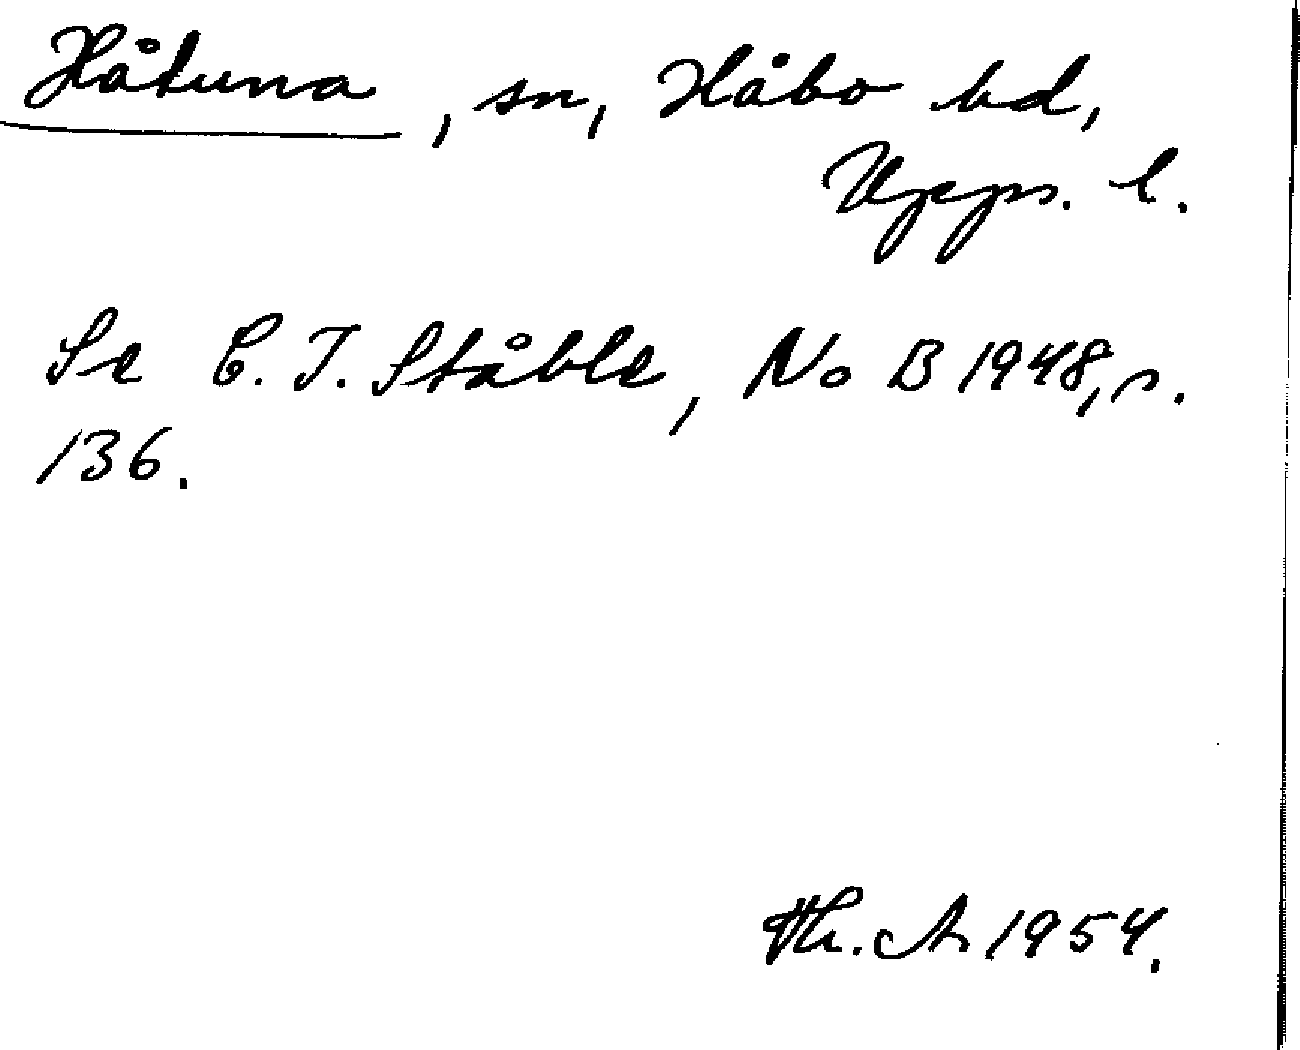 Håtuna, sn, Håbo hd,
Upps. l.
Se C. I. Ståhle, No B 1948, s.
136.
Th. A 1954.